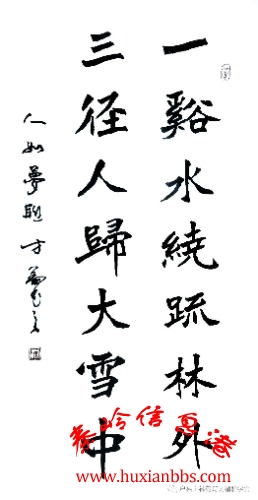 一谿水繞疏林外
三径人歸大雪中
人如夢聯
秦岭信息港
www.huxianbbs.com